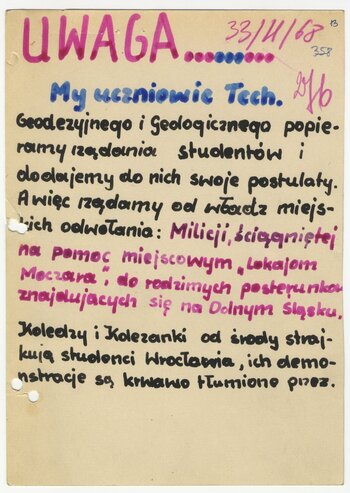 33/II/68
13
358
UWAGA.........
My uczniowie Tech.
Geodezyjnego i Geologicznego popie-
ramy rządania studentów i
dodajemy do nich swoje postulaty.
A więc rządamy od władz miejs-
kich odwołania: Milicji, ściągniętej
na pomoc miejscowym „Lokajom
Moczara", do rodzimych posterunków
znajdujących się na Dolnym Śląsku.
Koledzy i Koleżanki od środy straj-
kują studenci Wrocławia, ich demo-
nstracje są krwawo tłumione przez.